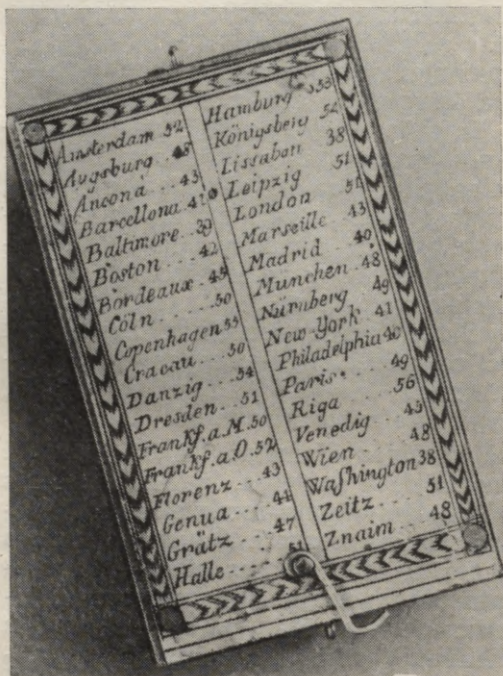 Amsterdam 52
Augsburg 48
Ancona 43
Barcellona 41
Baltimore 39
Boston 42
Bordeaux 45
Cöln 50
Copenhagen 55
Cracau 50
Danzig 54
Dresden 51
Frankf. a. M. 50
Frankf. a. O. 52
Florenz 43
Genua 44
Grätz 47
Halle 51
Hamburg 53
Königsberg 54
Lissabon 38
Leipzig 51
London 51
Marseille 43
Madrid 40
Munchen 48
Nürnberg 49
New-York 41
Philadelphia 40
Paris 49
Riga 56
Venedig 45
Wien 48
Washington 38
Zeitz 51
Znaim 48